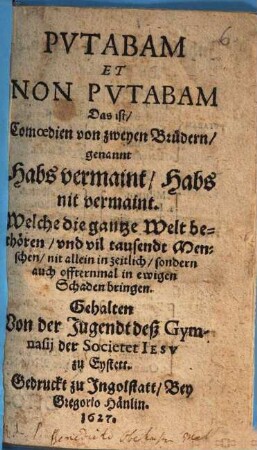 6
PVTABAM
ET
NON PVTABAM
Das ist/
Comœdien von zweyen Brüdern/
genannt
Habs vermaint/ Habs
nit vermaint.
Welche die gantze Welt be-
thören/ vnd vil tausendt Men-
schen/ nit allein in zeitlich/ sondern
auch offternmal in ewigen
Schaden bringen.
Gehalten
Von der Jugendt deß Gym-
nasij der Societet IESV
zu Eystett.
Gedruckt zu Ingolstatt/ Bey
Gregorio Hänlin.
1627.